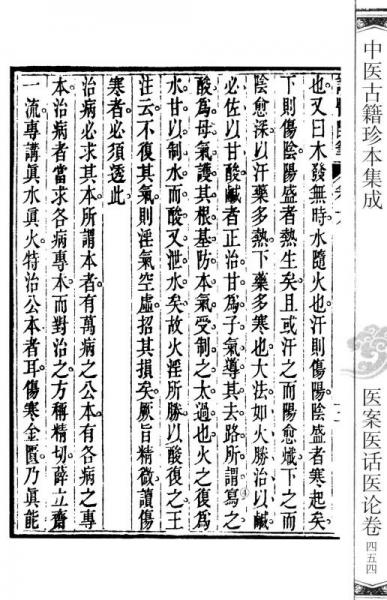 中医古籍珍本集成
医案医话医论卷
四五四
也又曰木發無時水隨火也汗則傷陽陰盛者寒起矣
下則傷陰陽盛者熱生矣且或汗之而陽愈熾下之而
陰愈深以汗藥多熱下藥多寒也大法如火勝治以鹹
必佐以甘酸鹹者正治甘爲子氣導其去路所謂寫之
酸爲母氣護其根基防本氣受制之太過也火之復爲
水甘以制水而酸又泄水矣故火淫所勝以酸復之王
注云不復其氣則淫氣空虛招其損矣厥旨精微讀傷
寒者必須透此
治病必求其本所謂本者有萬病之公本有各病之專
本治病者當求各病專本而對治之方稱精切薛立齋
一流專講眞水眞火特治公本者耳傷寒金匱乃眞能